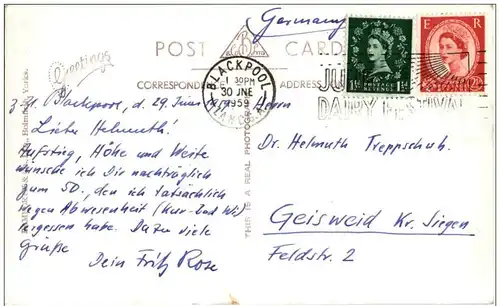 Germany
POST CARD
Greetings
CORRESPONDENCE
ADDRESS
BLACKPOOL
1 30PM
30 JNE
1959
LANCS.
1½D POSTAGE REVENUE 1½D
E R
DAIRY FESTIVAL
THIS IS A REAL PHOTOGRAPH
z.Zt. Blackpool, d. 29. Juni 1959
Lieber Helmuth!
Aufstieg, Höhe und Weite
wünsche ich Dir nachträglich
zum 50., den ich tatsächlich
wegen Abwesenheit (Kur-Bad Wi)
vergessen habe. Dazu viele
Grüße
Dein Fritz Rose
Herrn
Dr. Helmuth Treppschuh
Geisweid Kr. Siegen
Feldstr. 2